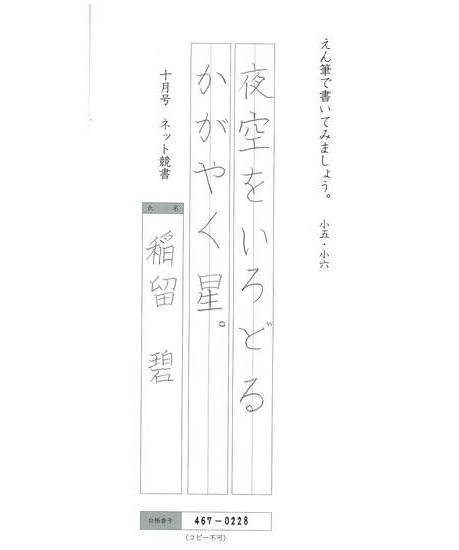 えん筆で書いてみましょう。 小五・小六
夜空をいろどる
かがやく星。
十月号 ネット競書
氏名
稲留 碧
台帳番号 467-0228
(コピー不可)